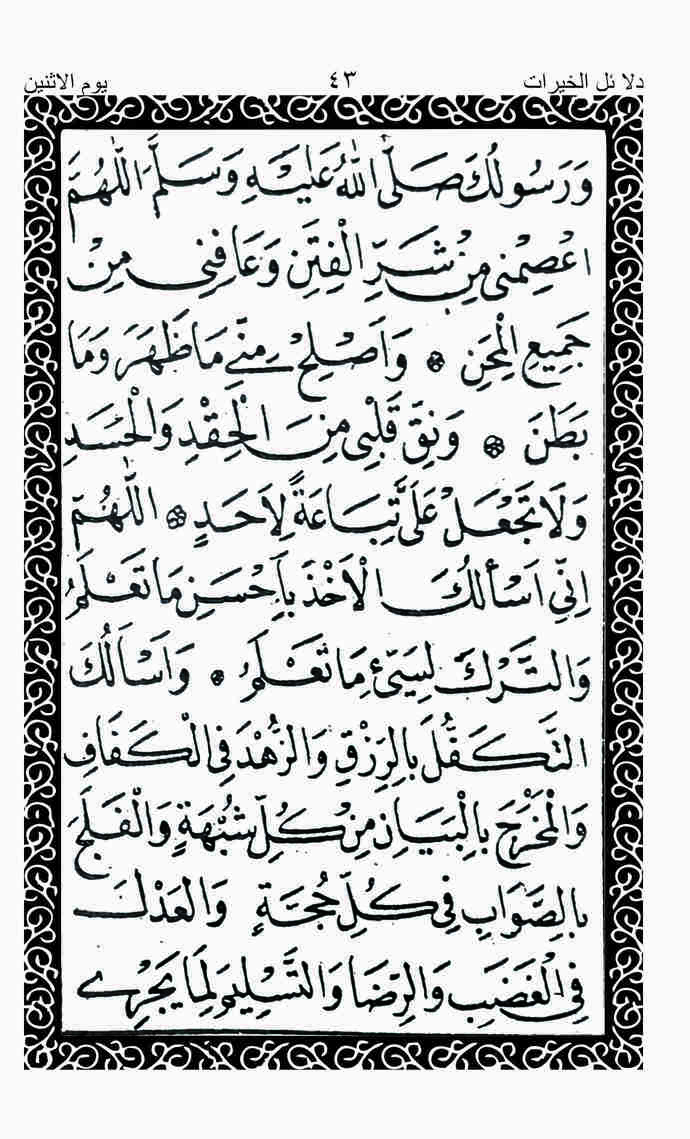 دلا ئل الخيرات ٤٣ يوم الاثنين
وَرَسُولُكَ صَلَّى اللّٰهُ عَلَيْهِ وَسَلَّمَ اَللّٰهُمَّ
اعْصِمْنِى مِنْ شَرِّ الْفِتَنِ وَعَافِنِى مِنْ
جَمِيعِ الْمِحَنِ ❁ وَاَصْلِحْ مِنِّے مَا ظَهَرَ وَمَا
بَطَنَ ❁ وَنَقِّ قَلْبِى مِنَ الْحِقْدِ وَالْحَسَدِ
وَلَا تَجْعَلْ عَلَىَّ تِبَاعَةً لِاَحَدٍ ❁ اَللّٰهُمَّ
اِنِّى اَسْأَلُكَ الْاَخْذَ بِاَحْسَنِ مَا تَعْلَمُ
وَالتَّرْكَ لِسَيِّئِ مَا تَعْلَمُ ❁ وَاَسْأَلُكَ
التَّكَفُّلَ بِالرِّزْقِ وَالزُّهْدَ فِى الْكَفَافِ
وَالْمَخْرَجَ بِالْبَيَانِ مِنْ كُلِّ شُبْهَةٍ وَالْفَلَجَ
بِالصَّوَابِ فِى كُلِّ حُجَّةٍ وَالْعَدْلَ
فِى الْغَضَبِ وَالرِّضَا وَالتَّسْلِيمَ لِمَا يَجْرِے